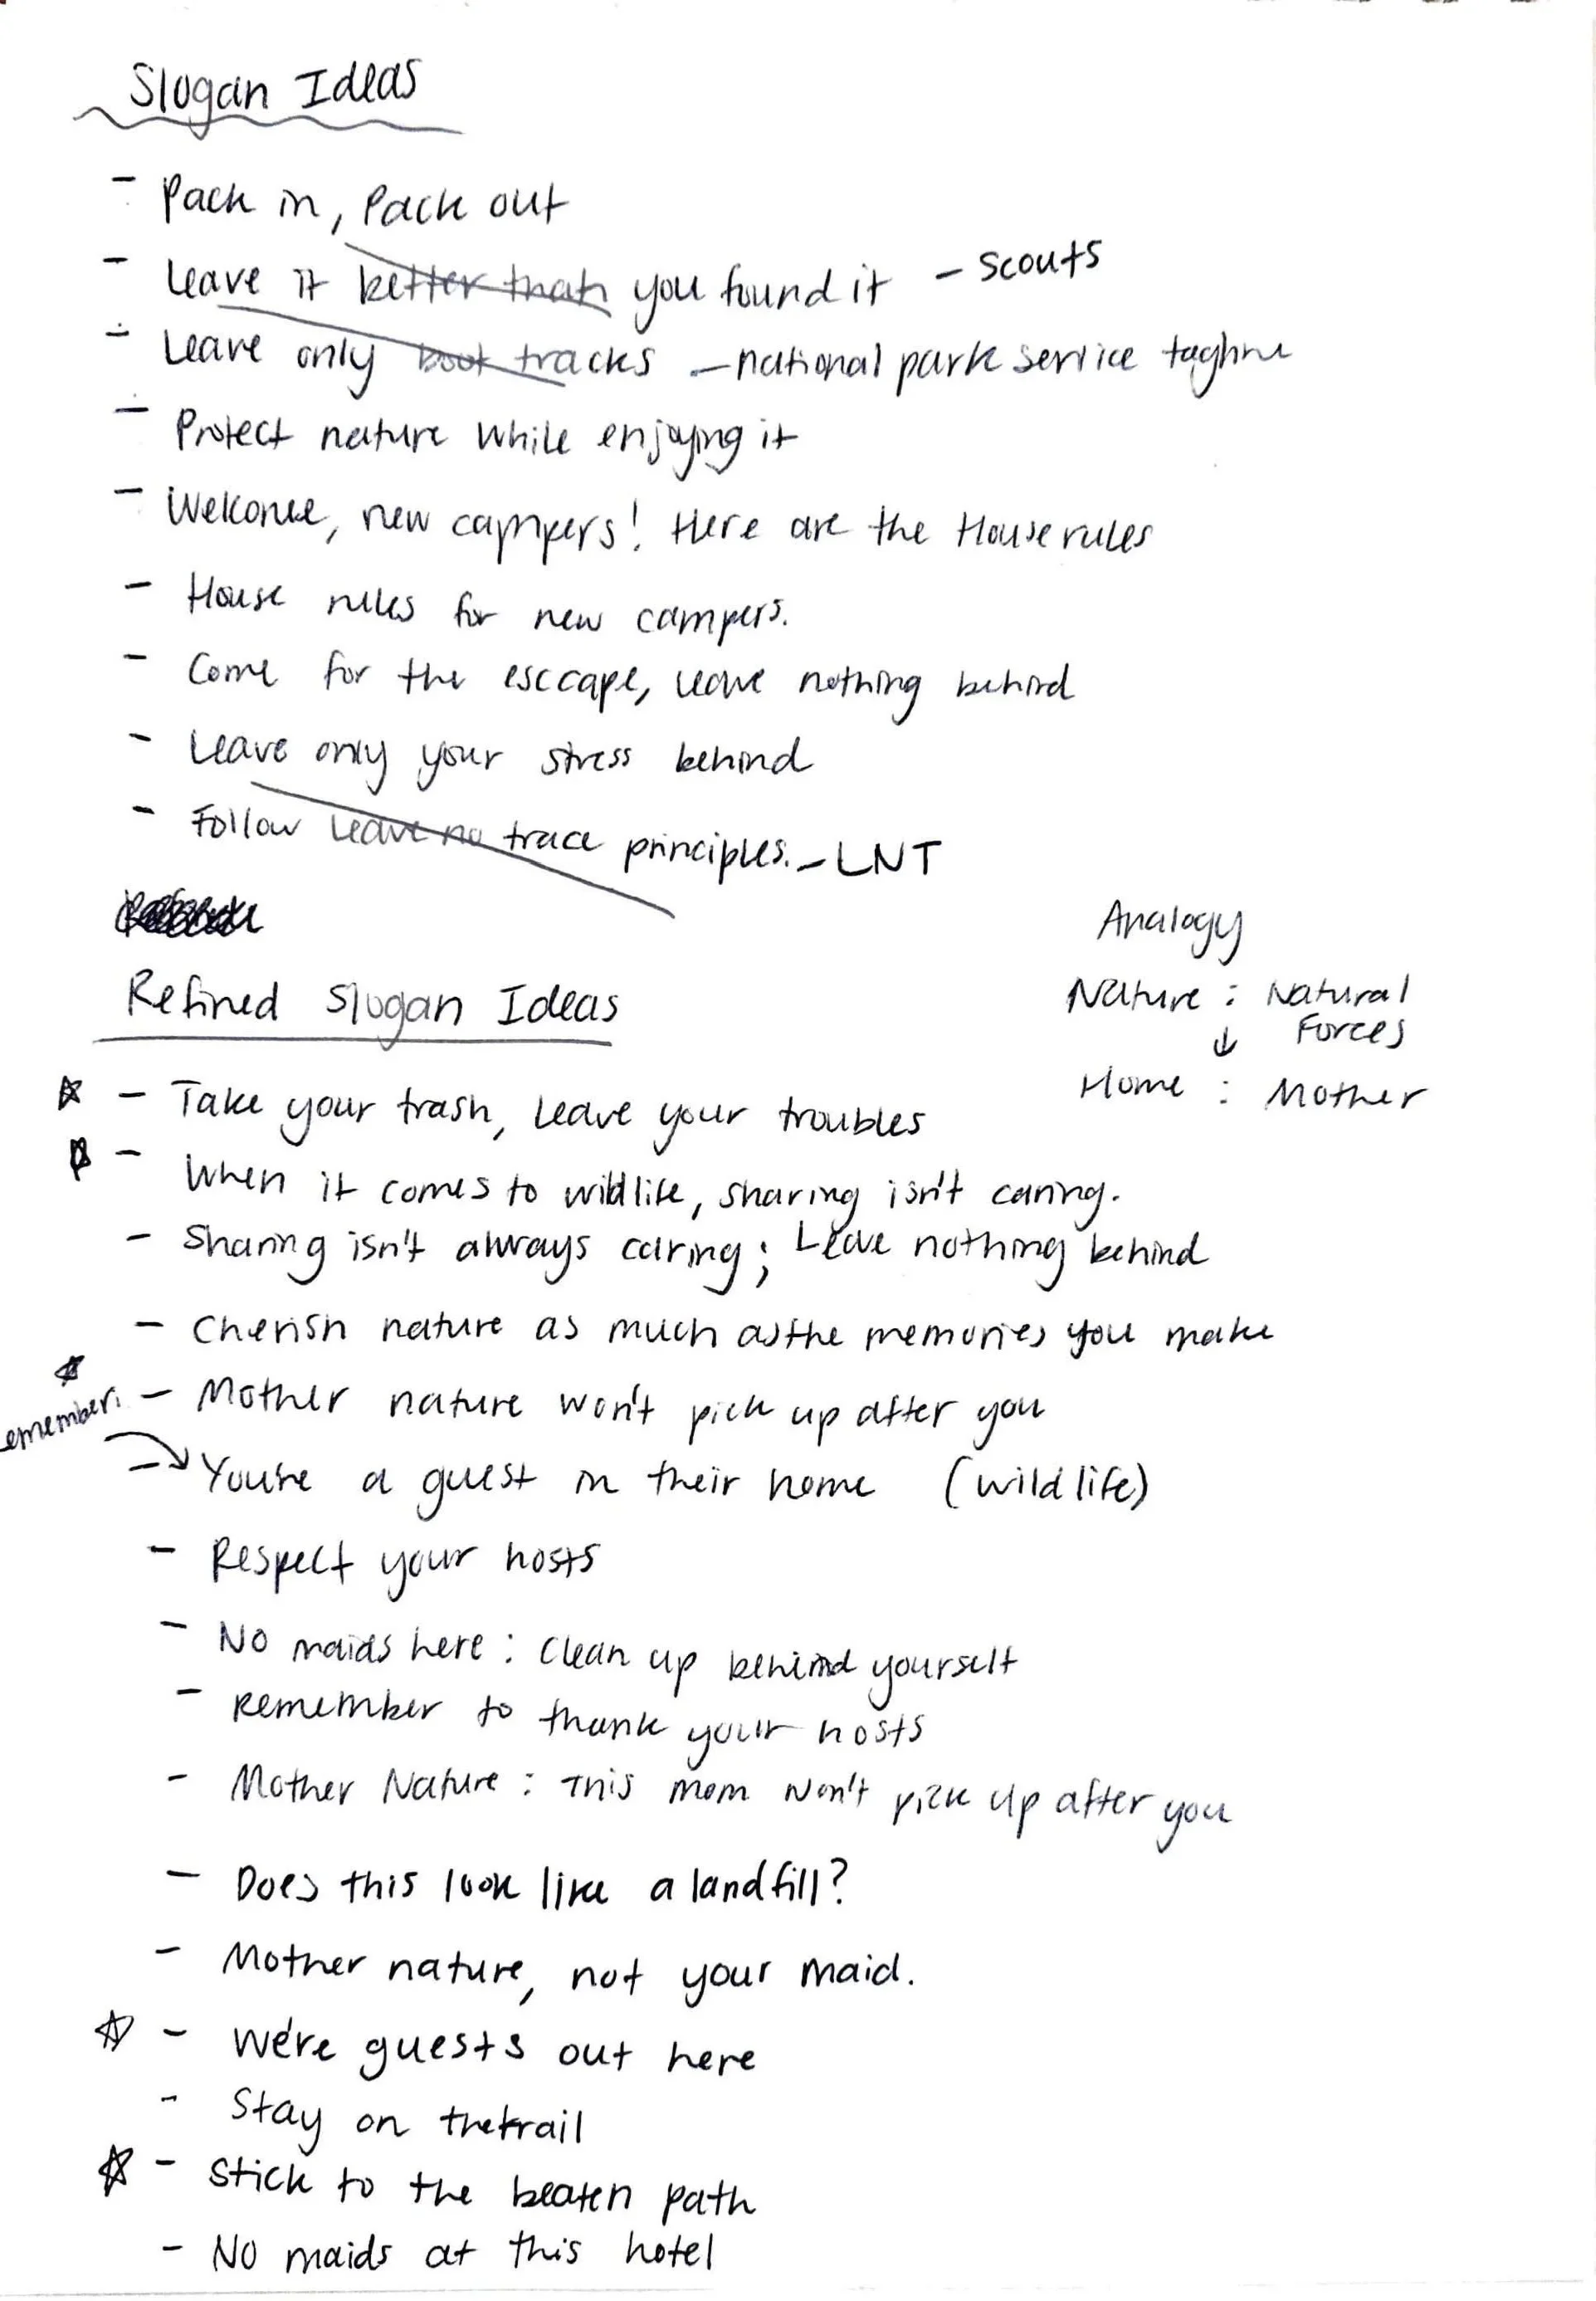 Slogan Ideas
- Pack in, Pack out
- Leave it better than you found it - scouts
- Leave only boot tracks - national park service tagline
- Protect nature while enjoying it
- Welcome, new campers! Here are the House rules
- House rules for new campers.
- Come for the esccape, leave nothing behind
- Leave only your stress behind
- Follow Leave no trace principles. - LNT
Analogy
Nature : Natural
Forces
↓
Home : Mother
Refined Slogan Ideas
☆ - Take your trash, Leave your troubles
☆ - When it comes to wildlife, sharing isn't caring.
- Sharing isn't always caring; Leave nothing behind
- Cherish nature as much as the memories you make
☆ - Mother nature won't pick up after you
emember:
- You're a guest in their home (wildlife)
- Respect your hosts
- No maids here : Clean up behind yourself
- Remember to thank your hosts
- Mother Nature : This mom won't pick up after you
- Does this look like a landfill?
- Mother nature, not your maid.
☆ - We're guests out here
- Stay on the trail
☆ - Stick to the beaten path
- No maids at this hotel